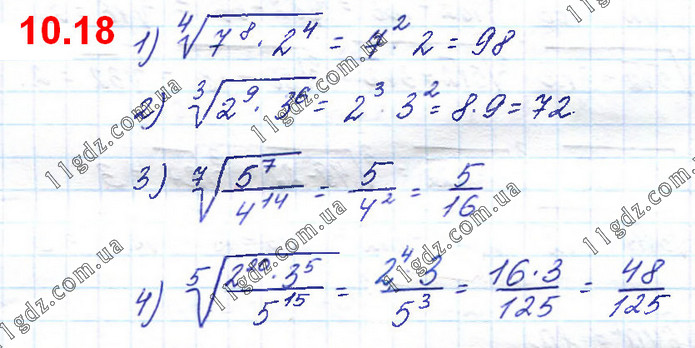 10.18
1) ⁴√(7⁸ · 2⁴) = 7² · 2 = 98
2) ³√(2⁹ · 3⁶) = 2³ · 3² = 8 · 9 = 72
3) ⁷√(5⁷/4¹⁴) = 5/4² = 5/16
4) ⁵√(2²⁰ · 3⁵/5¹⁵) = 2⁴ · 3/5³ = 16 · 3/125 = 48/125
11gdz.com.ua
11gdz.com.ua
11gdz.com.ua
11gdz.com.ua
11gdz.com.ua
11gdz.com.ua